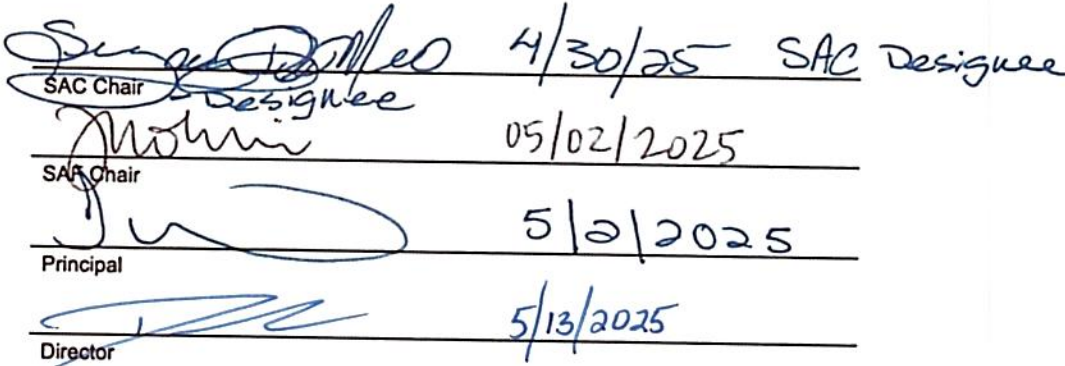 4/30/25 SAC Designee
SAC Chair
Designee
05/02/2025
SAF Chair
5/2/2025
Principal
5/13/2025
Director